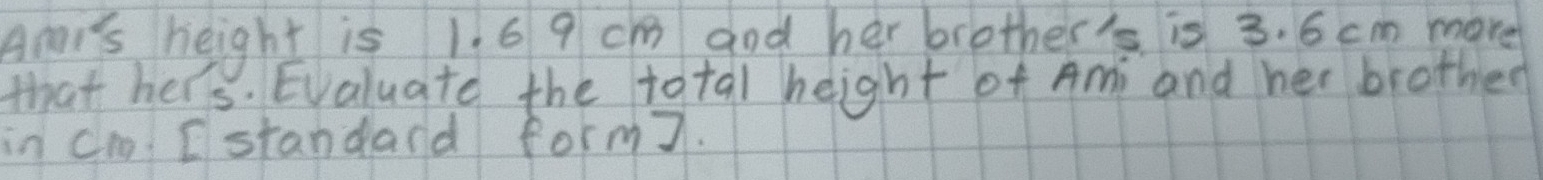 Ami's height is 1.69 cm and her brother's is 3.6 cm more
that her's. Evaluate the total height of Ami and her brother
in cm. [standard form].